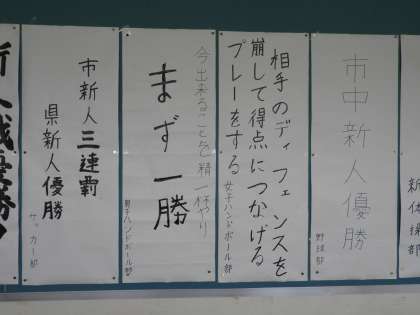 新体操部
市中新人優勝
野球部
相手のディフェンスを
崩して得点につなげる
プレーをする
女子ハンドボール部
今出来ることを精一杯やり
まず一勝
男子ハンドボール部
市新人三連覇
県新人優勝
サッカー部
新人戦優勝